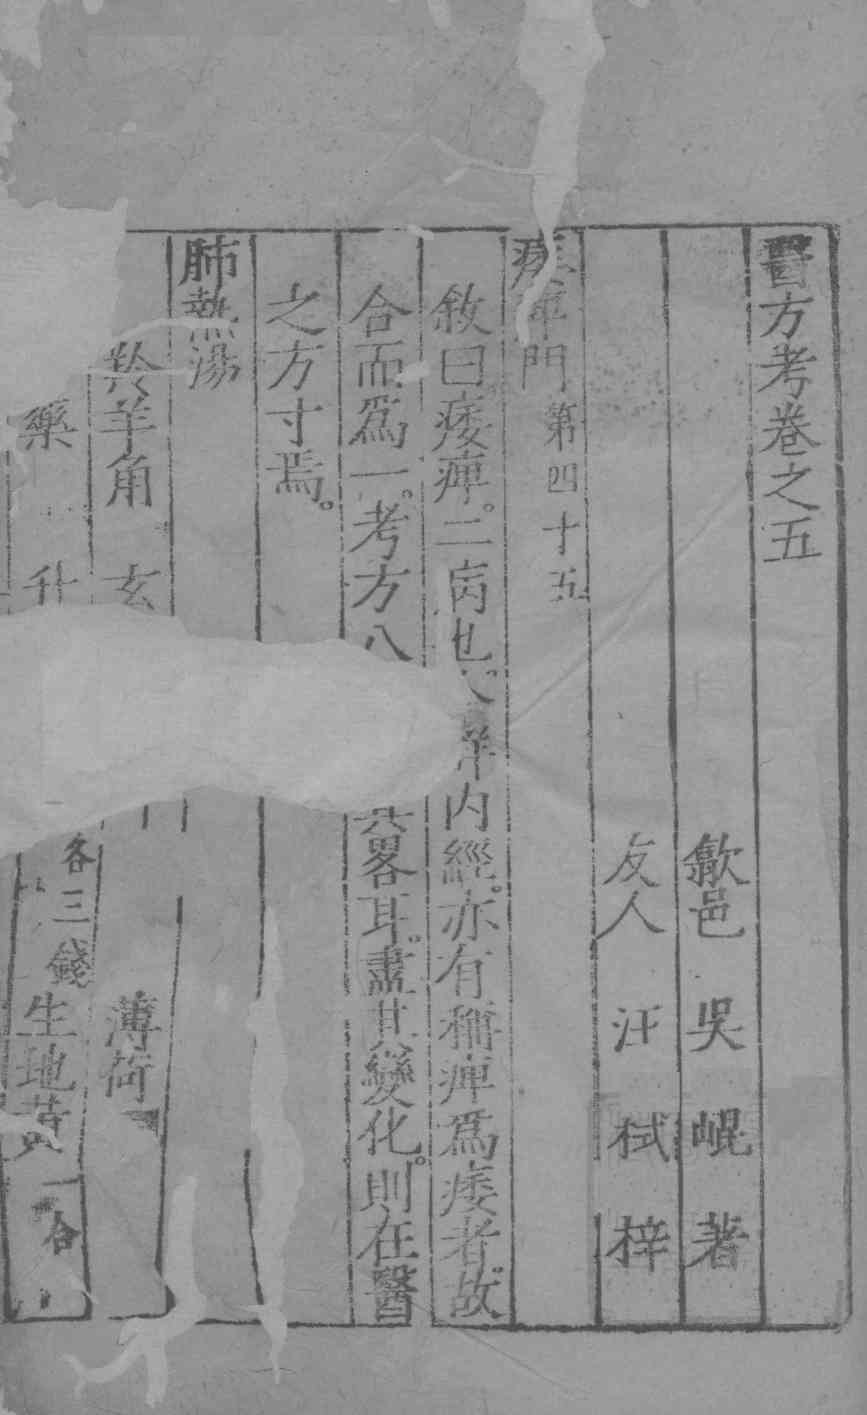 醫方考卷之五
歙邑 吳崐著
友人 汪栻梓
痿痺門第四十五
敘曰痿痺。二病也。內經。亦有稱痺爲痿者。故
合而爲一。考方八其畧耳。盡其變化。則在醫
之方寸焉。
肺熱湯
羚羊角 玄 薄荷
藥 升 各三錢 生地黃一合